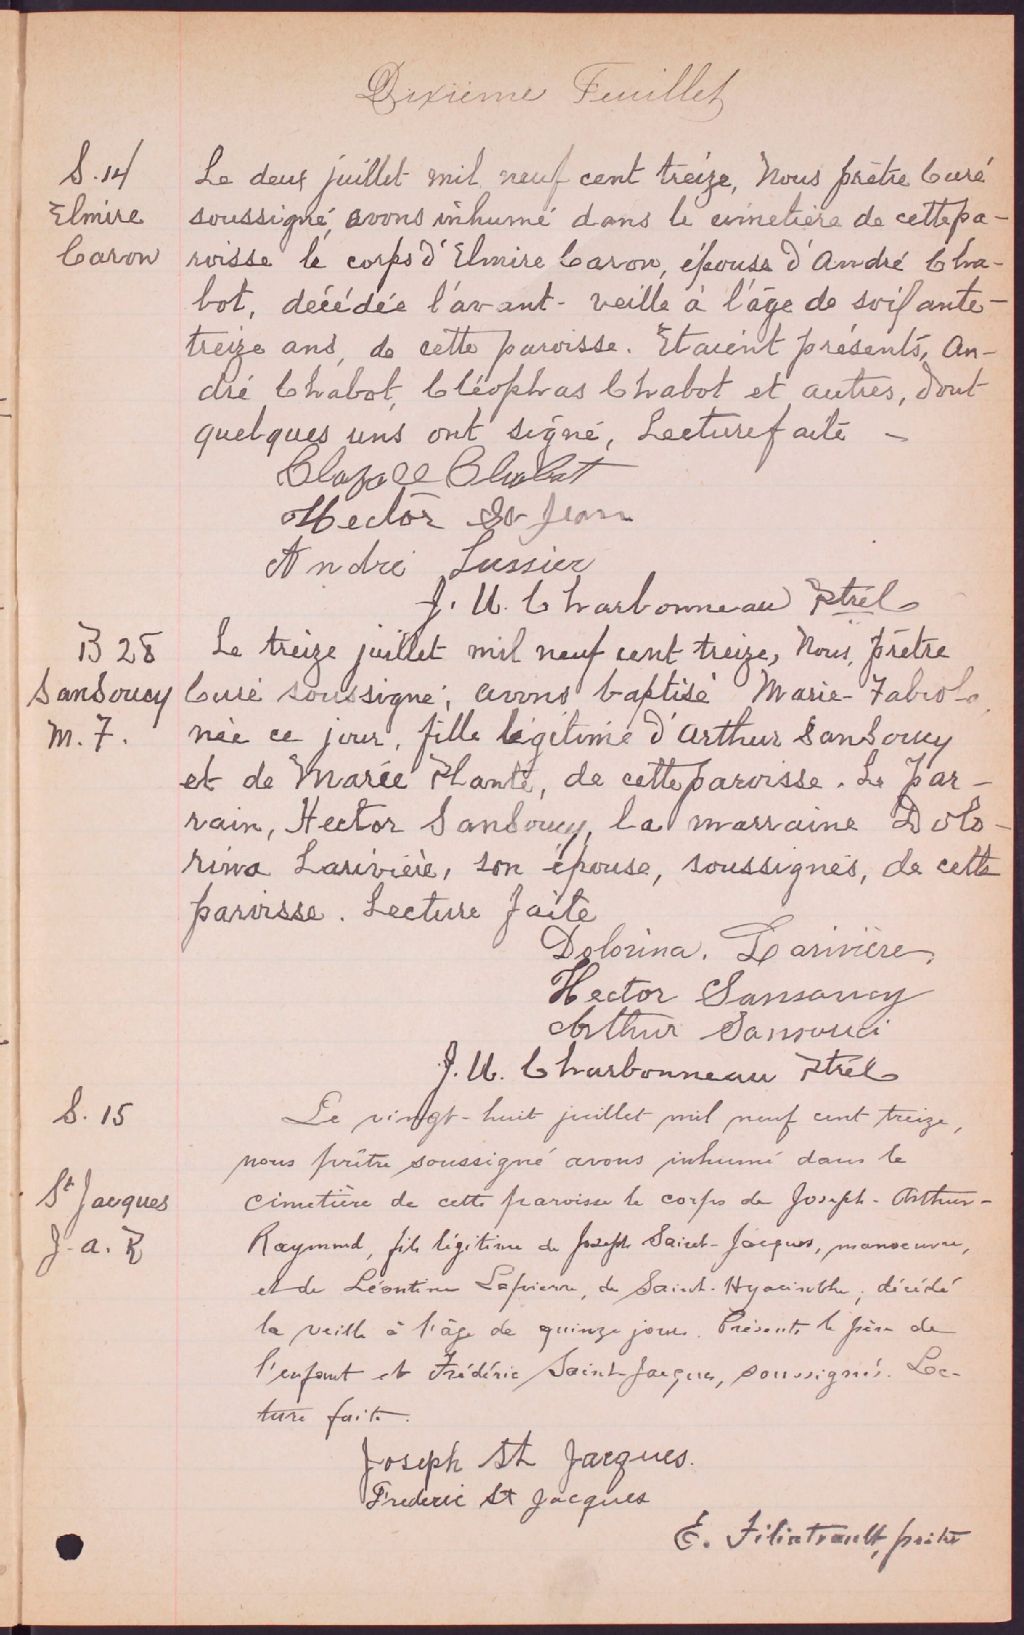 Dixième Feuillet
S. 14
Elmire
Caron
Le deux juillet mil neuf cent treize, Nous prêtre Curé
soussigné, avons inhumé dans le cimetière de cette pa-
roisse le corps d'Elmire Caron, épouse d'André Cha-
bot, décédée l'avant-veille à l'âge de soixante-
treize ans, de cette paroisse. Etaient présents, An-
dré Chabot, Cléophas Chabot et autres, dont
quelques uns ont signé, Lecture faite -
Chabot
Hector St Jean
André Lussier
J. U. Charbonneau Ptre
B 28
SanSoucy
M. F.
Le treize juillet mil neuf cent treize, Nous, prêtre
Curé soussigné, avons baptisé Marie-Fabiola,
née ce jour, fille légitime d'Arthur SanSoucy
et de Marie Plante, de cette paroisse. Le par-
rain, Hector SanSoucy, la marraine Dolo-
rina Larivière, son épouse, soussignés, de cette
paroisse. Lecture faite
Dolorina. Larivière,
Hector Sansoucy
Arthur Sansouci
J. U. Charbonneau Ptre
S. 15
St Jacques
J. a. R
Le vingt-huit juillet mil neuf cent treize,
nous prêtre soussigné avons inhumé dans le
cimetière de cette paroisse le corps de Joseph-Arthur-
Raymond, fils légitime de Joseph Saint-Jacques, manoeuvre,
et de Léontine Lapierre, de Saint-Hyacinthe, décédé
la veille à l'âge de quinze jours. Présents le père de
l'enfant et Frédéric Saint-Jacques, soussignés. Lec-
ture faite.
Joseph St Jacques.
Frederic St Jacques
E. Filiatrault, prêtre